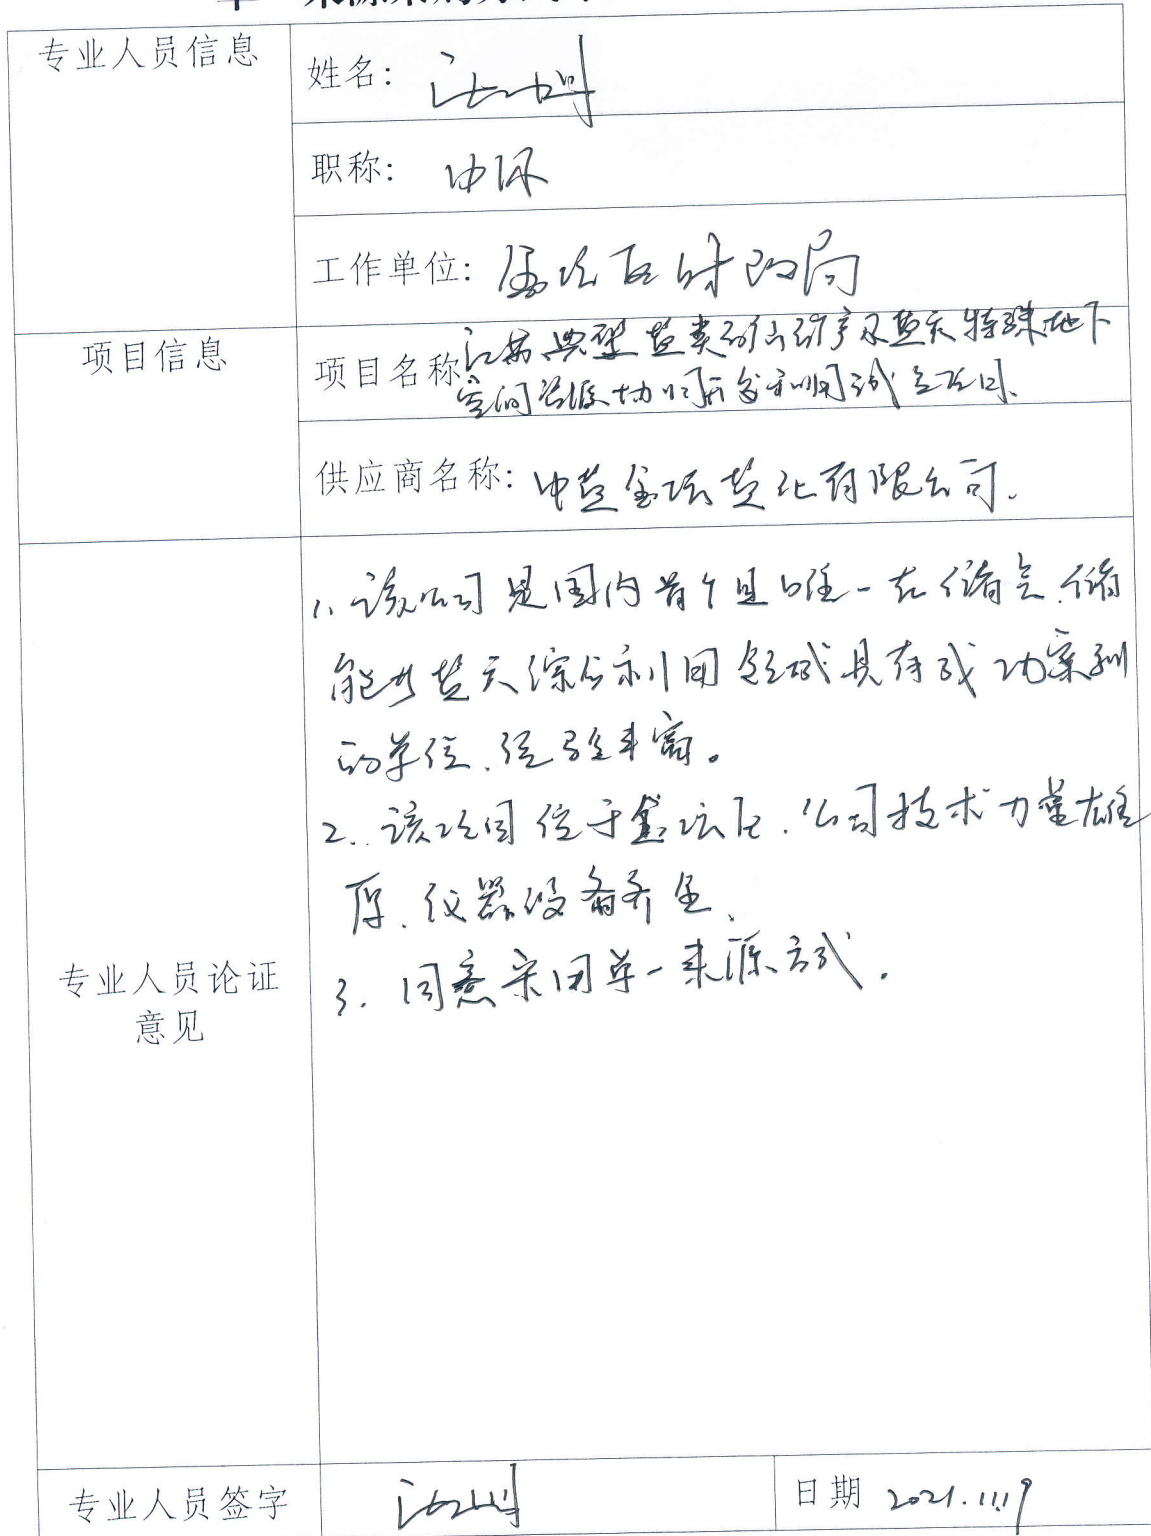 专业人员信息
姓名:
职称: 中级
工作单位: 金坛区财政局
项目信息
项目名称 江苏典型盐类矿山矿产及盐穴特殊地下
空间资源协同开发利用试点项目、
供应商名称: 中盐金坛盐化有限公司.
1. 该公司是国内首个且唯一在储气、储
能等盐穴综合利用领域具有成功案例
的单位、经验丰富。
2. 该项目位于金坛区、公司技术力量雄
厚、仪器设备齐全、
3. 同意采用单一来源方式.
专业人员论证
意见
专业人员签字
日期 2021.11.19